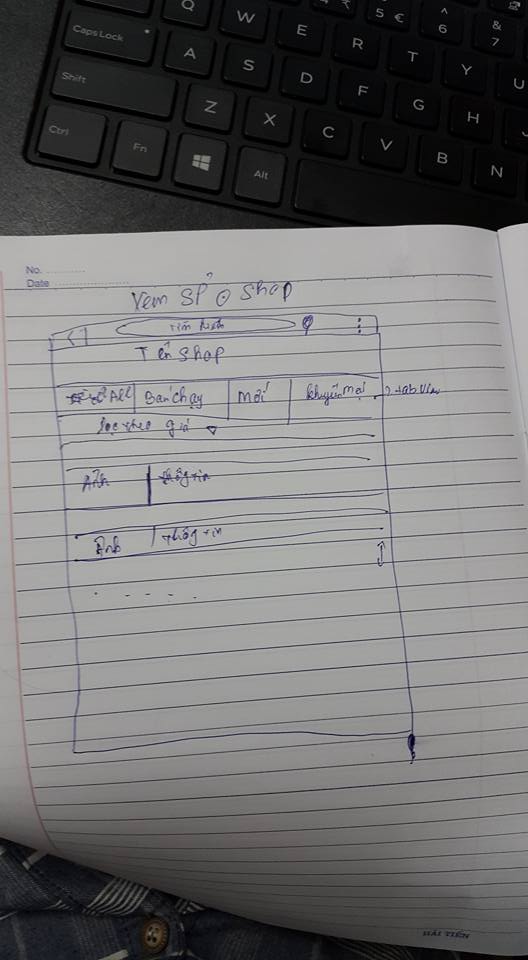 Caps Lock Q W E R T Y U
5 € ^ 6 & 7
A S D F G H
Shift Z X C V B N
Ctrl Fn Alt
No.
Date
Xem SP ở Shop
< Tìm kiếm
Tên Shop
All Bán chạy Mới khuyến mại → tab view
lọc theo giá
Ảnh thông tin
Ảnh thông tin
. . . . .
HẢI TIẾN